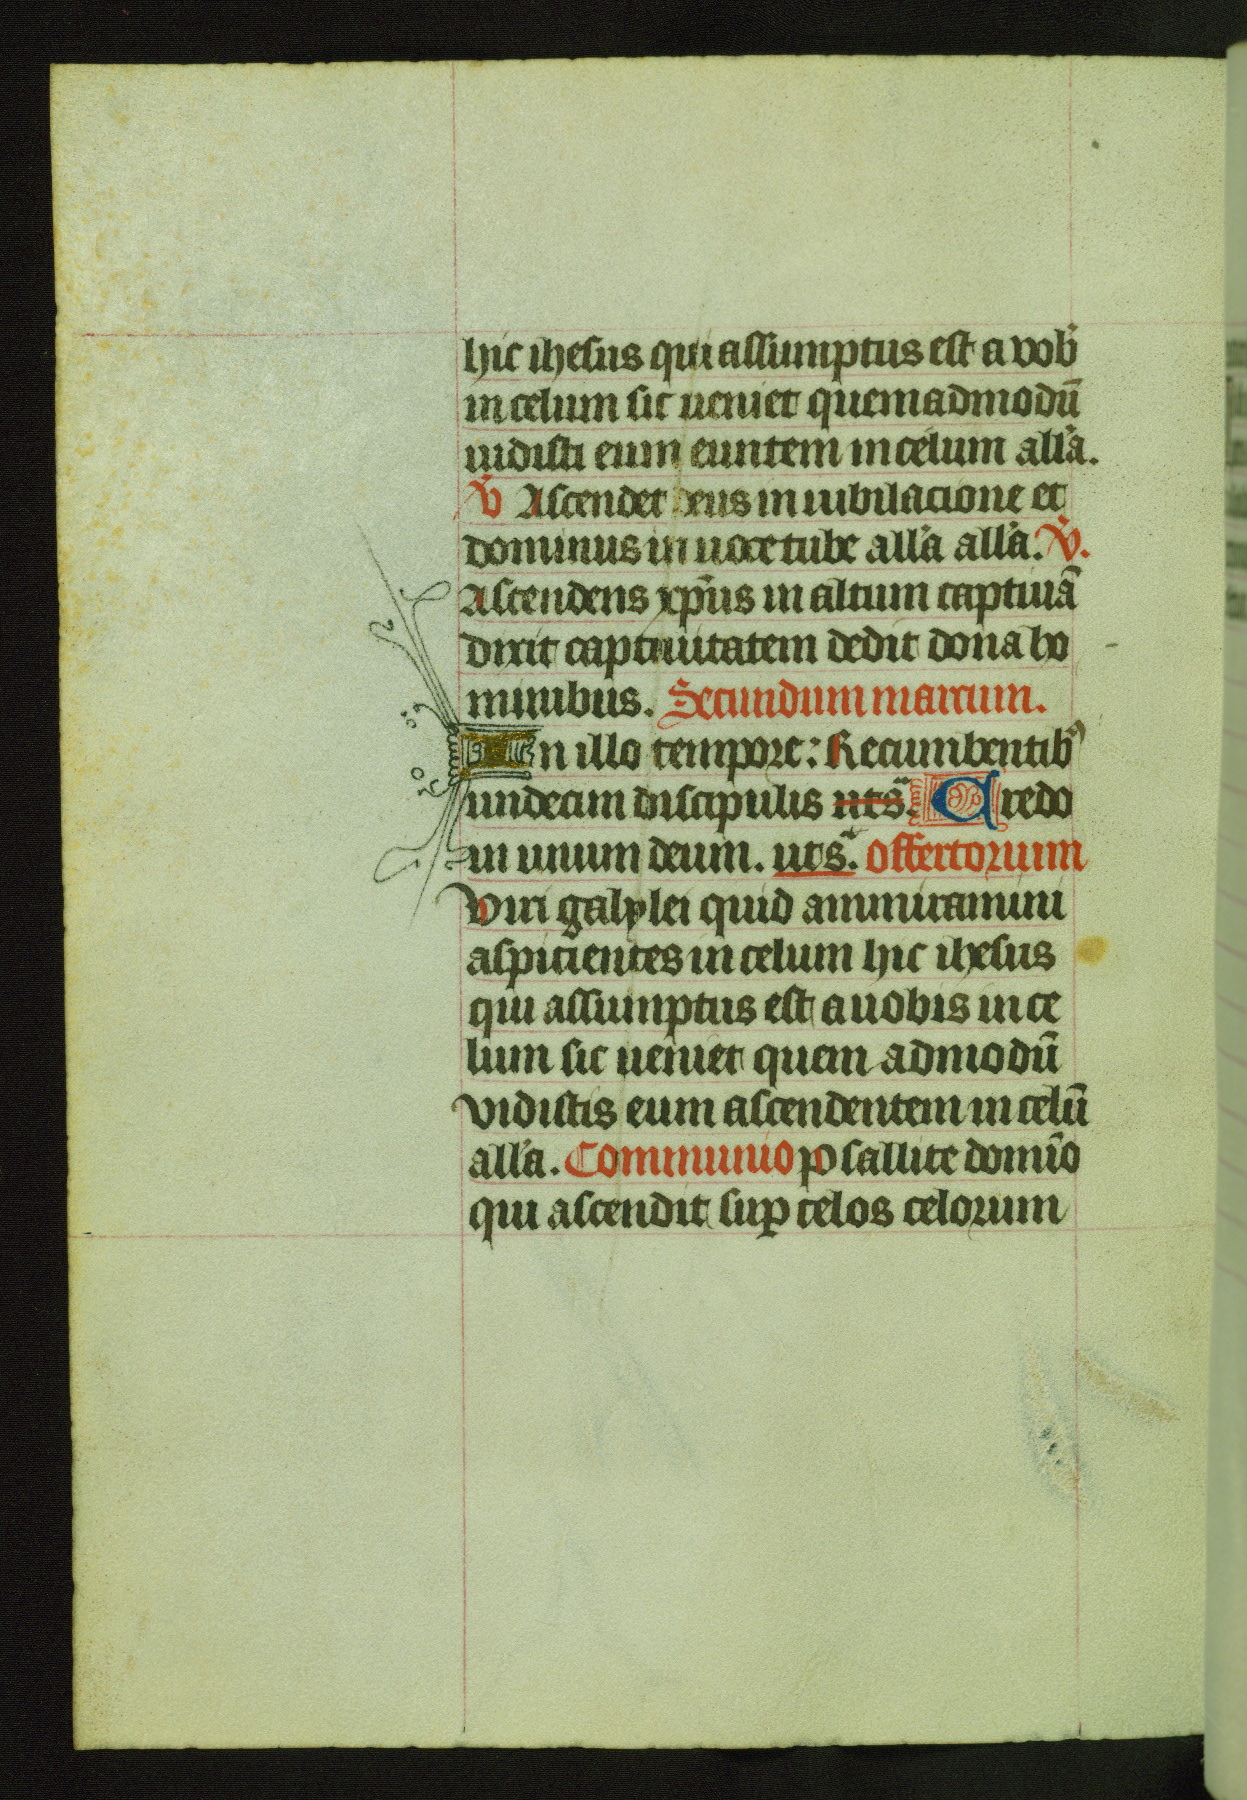 hic ihesus qui assumptus est a vob̾
in celum sic ueniet quemadmodū
uidisti eum euntem in celum all̾a.
V̾ Ascendet deus in iubilacione et
dominus in uoce tube all̾a all̾a. V̾.
Ascendens xp̄us in altum captiuā
dixit captiuitatem dedit dona ho
minibus. Secundum marcum.
In illo tempore: Recumbentibꝰ
undecim discipulis uts̄. Credo
in unum deum. uts̄. offertorium
Viri galylei quid ammiramini
aspicientes in celum hic ihesus
qui assumptus est a uobis in ce
lum sic ueniet quem admodū
vidistis eum ascendentem in celū
all̾a. Communio psallite domīo
qui ascendit sup̱ celos celorum